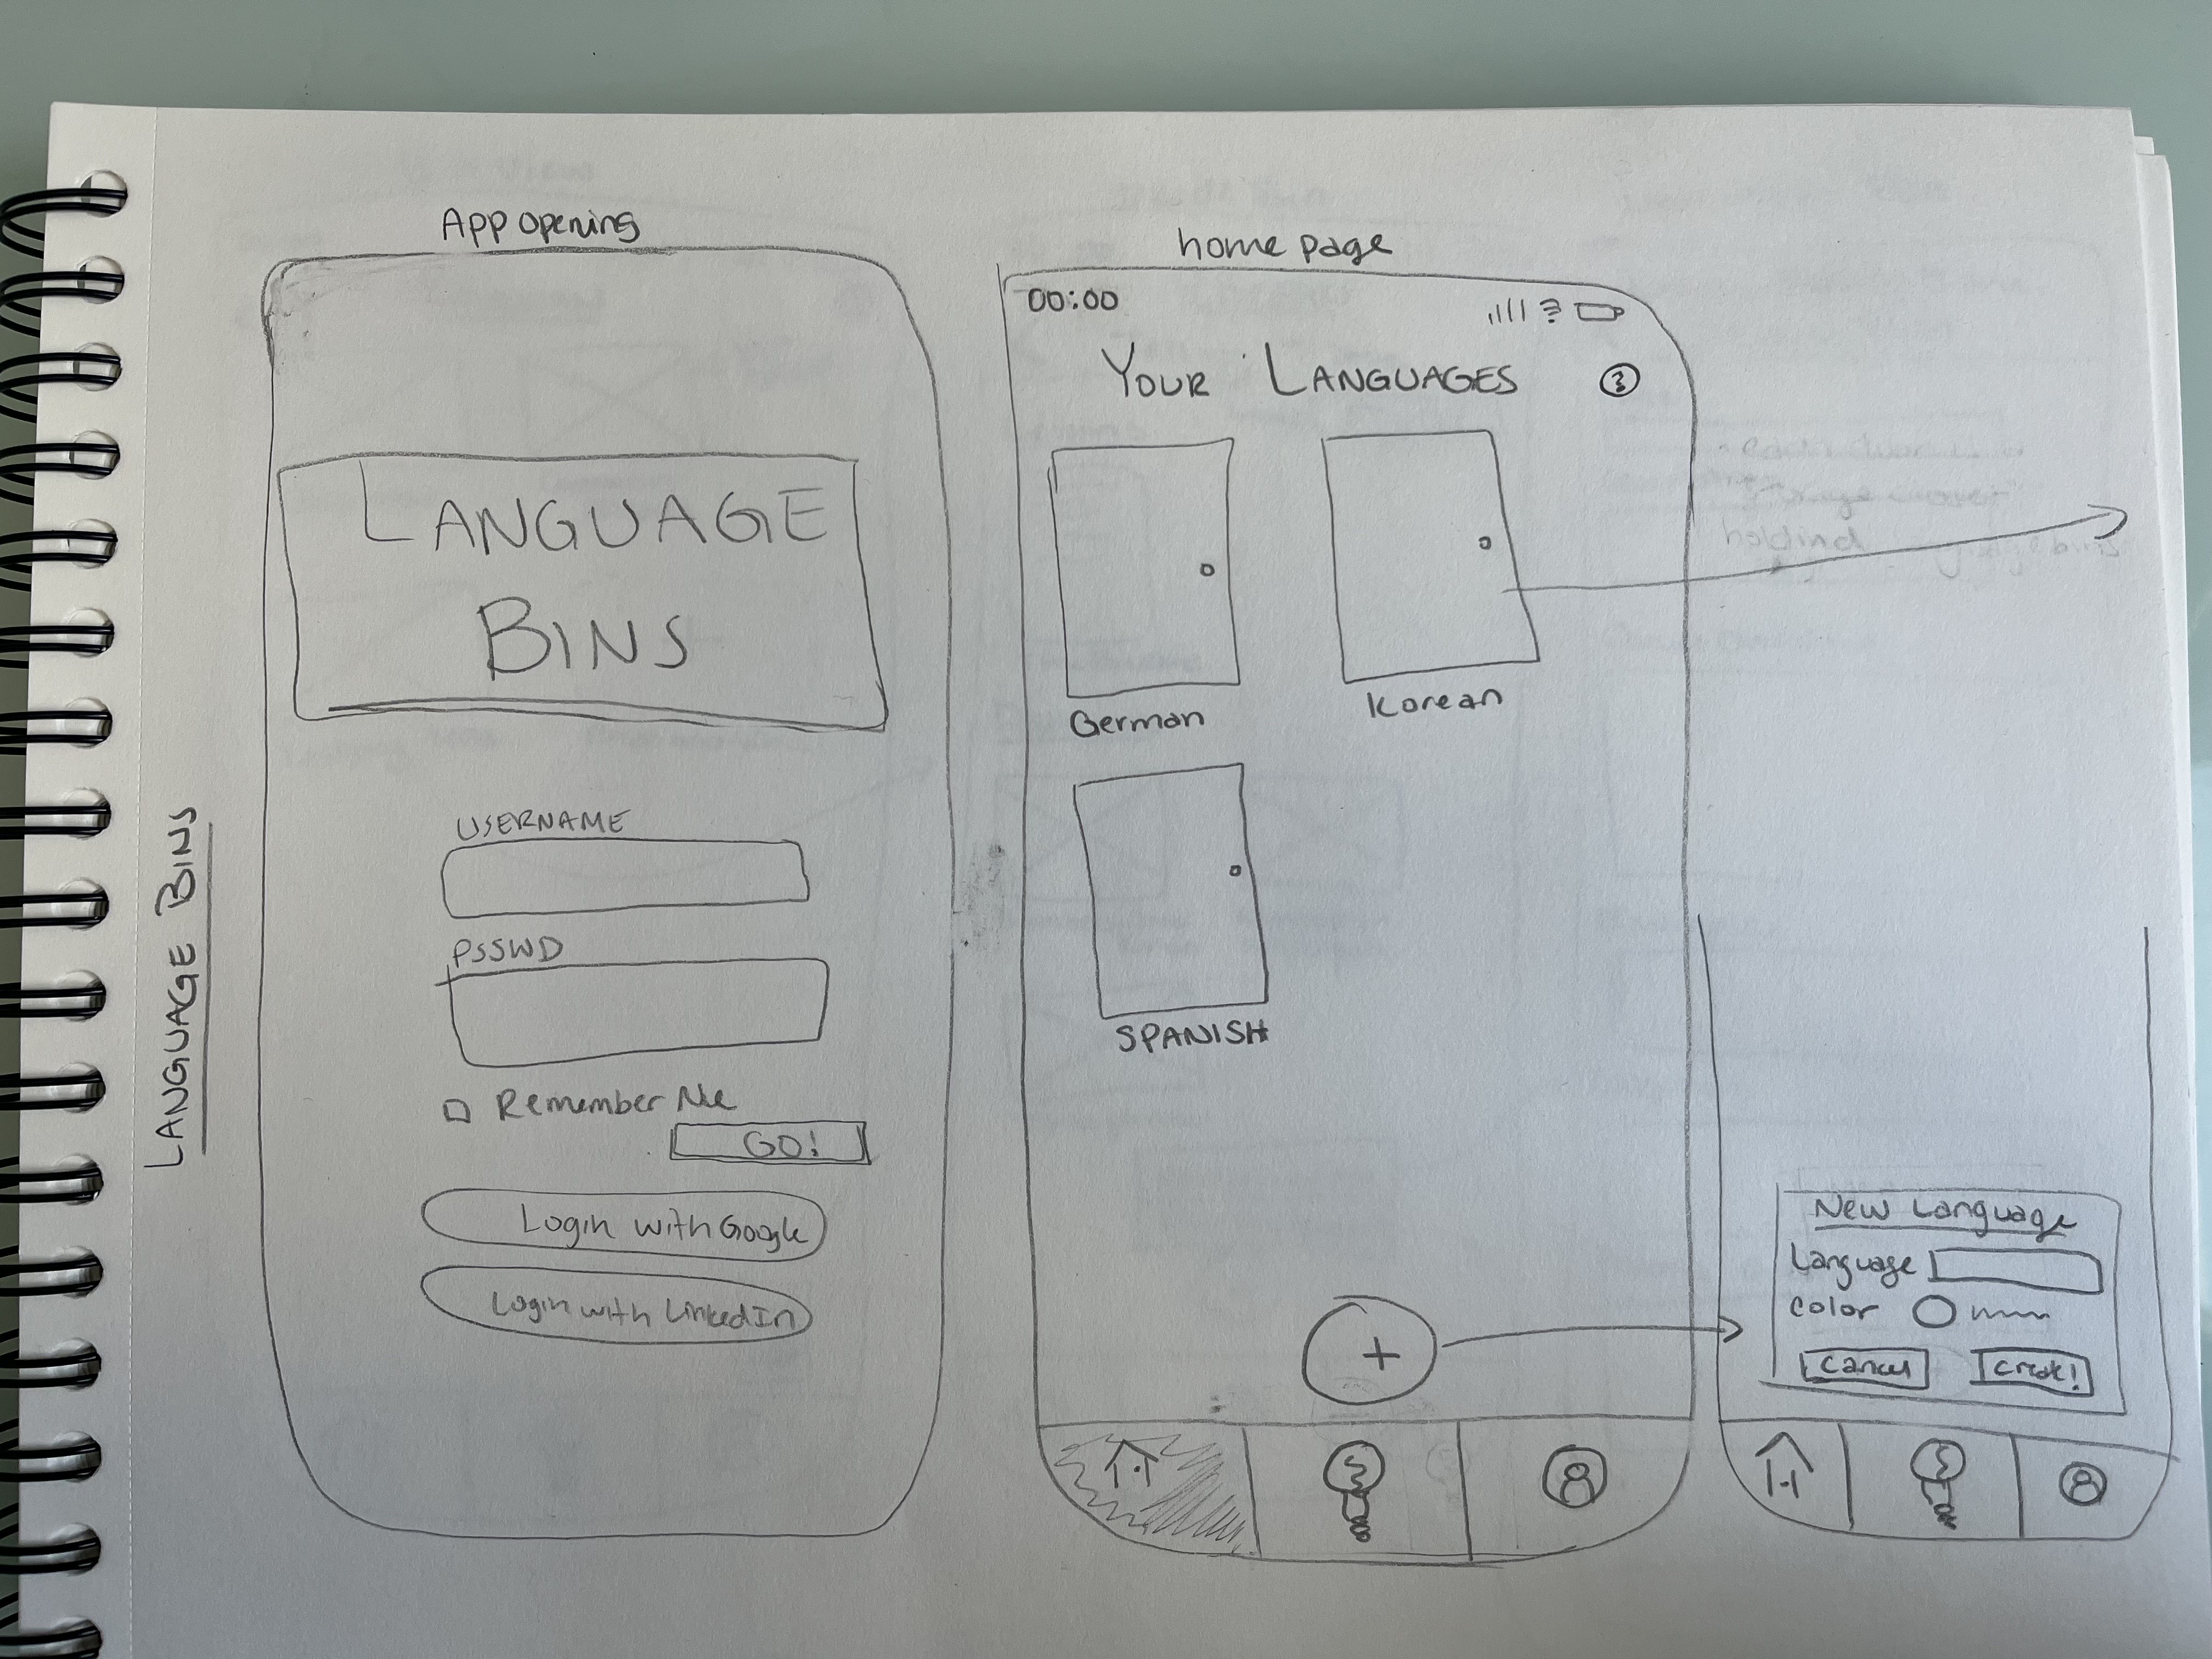 LANGUAGE BINS
App opening
LANGUAGE
BINS
USERNAME
PSSWD
Remember Me
GO!
Login with Google
Login with LinkedIn
home page
00:00
YOUR LANGUAGES
German
Korean
SPANISH
+
New Language
Language
Color
Cancel
Create!